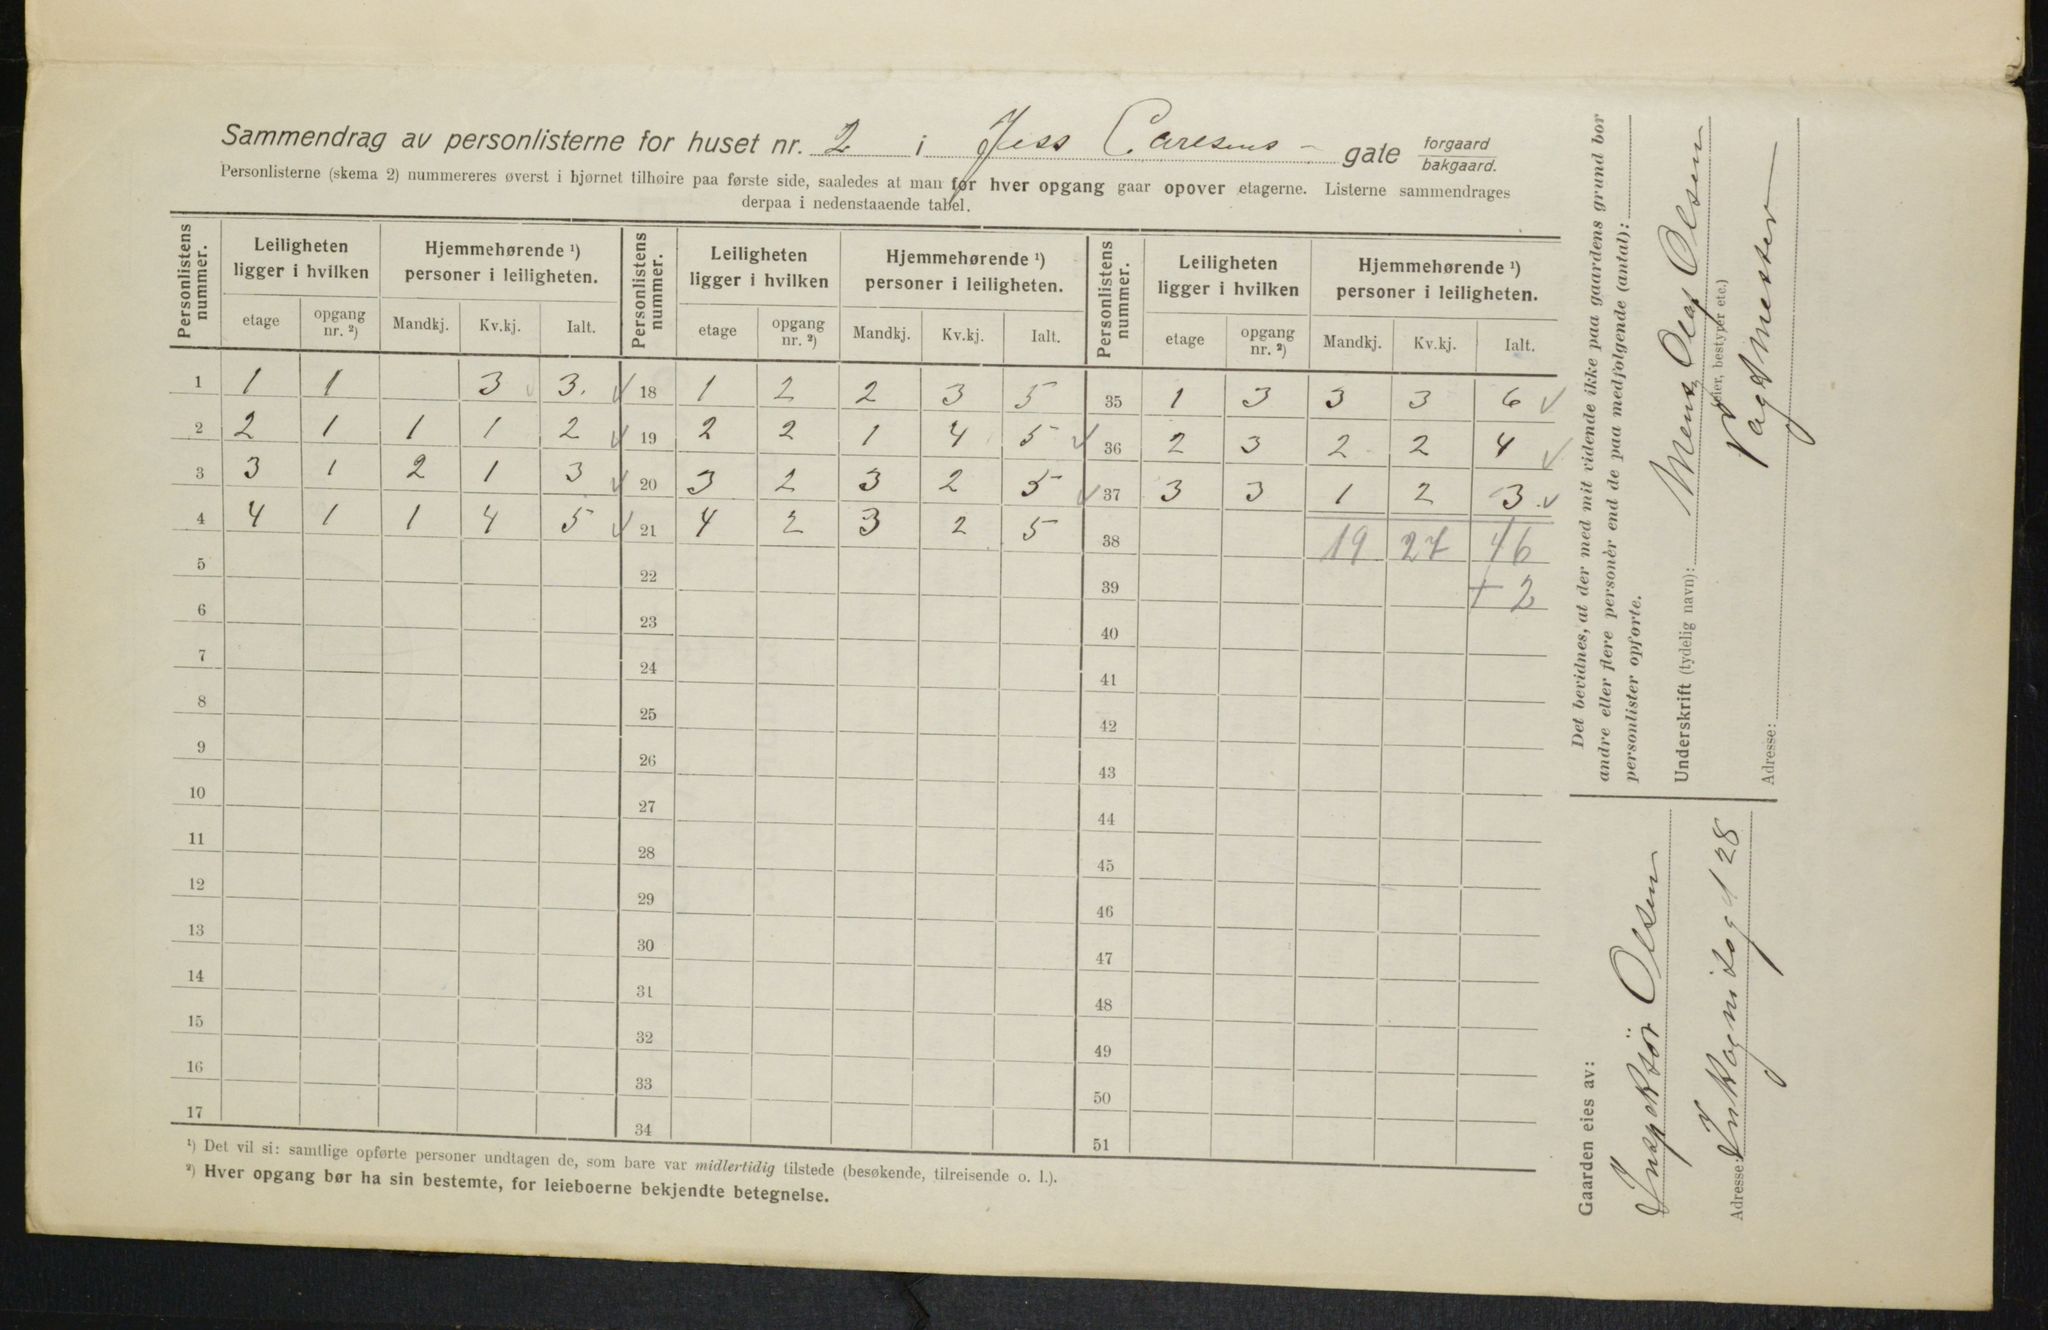 Sammendrag av personlisterne for huset nr. 2 i Jess Carlsens - gate forgaard bakgaard.
Personlisterne (skema 2) nummereres øverst i hjørnet tilhøire paa første side, saaledes at man for hver opgang gaar opover etagerne. Listerne sammendrages
derpaa i nedenstaaende tabel.
Personlistens nummer. Leiligheten ligger i hvilken Hjemmehørende ¹) personer i leiligheten. Personlistens nummer. Leiligheten ligger i hvilken Hjemmehørende ¹) personer i leiligheten. Personlistens nummer. Leiligheten ligger i hvilken Hjemmehørende ¹) personer i leiligheten.
etage opgang nr. ²) Mandkj. Kv.kj. Ialt. etage opgang nr. ²) Mandkj. Kv.kj. Ialt. etage opgang nr. ²) Mandkj. Kv.kj. Ialt.
1 1 1 3 3. ✓ 18 1 2 2 3 5 35 1 3 3 3 6 ✓
2 2 1 1 1 2 ✓ 19 2 2 1 4 5 ✓ 36 2 3 2 2 4 ✓
3 3 1 2 1 3 ✓ 20 3 2 3 2 5 ✓ 37 3 3 1 2 3 ✓
4 4 1 1 4 5 ✓ 21 4 2 3 2 5 38 19 27 46
5 22 39 + 2
6 23 40
7 24 41
8 25 42
9 26 43
10 27 44
11 28 45
12 29 46
13 30 47
14 31 48
15 32 49
16 33 50
17 34 51
¹) Det vil si: samtlige opførte personer undtagen de, som bare var midlertidig tilstede (besøkende, tilreisende o. l.).
²) Hver opgang bør ha sin bestemte, for leieboerne bekjendte betegnelse.
Det bevidnes, at der med mit vidende ikke paa gaardens grund bor
andre eller flere personer end de paa medfølgende (antal):
personlister opførte.
Underskrift (tydelig navn): Mens Olaf Olsen
(eier, bestyrer etc.)
Vagtmester
Adresse:
Gaarden eies av:
Inspektör Olsen
Adresse: Inkognitogt 28